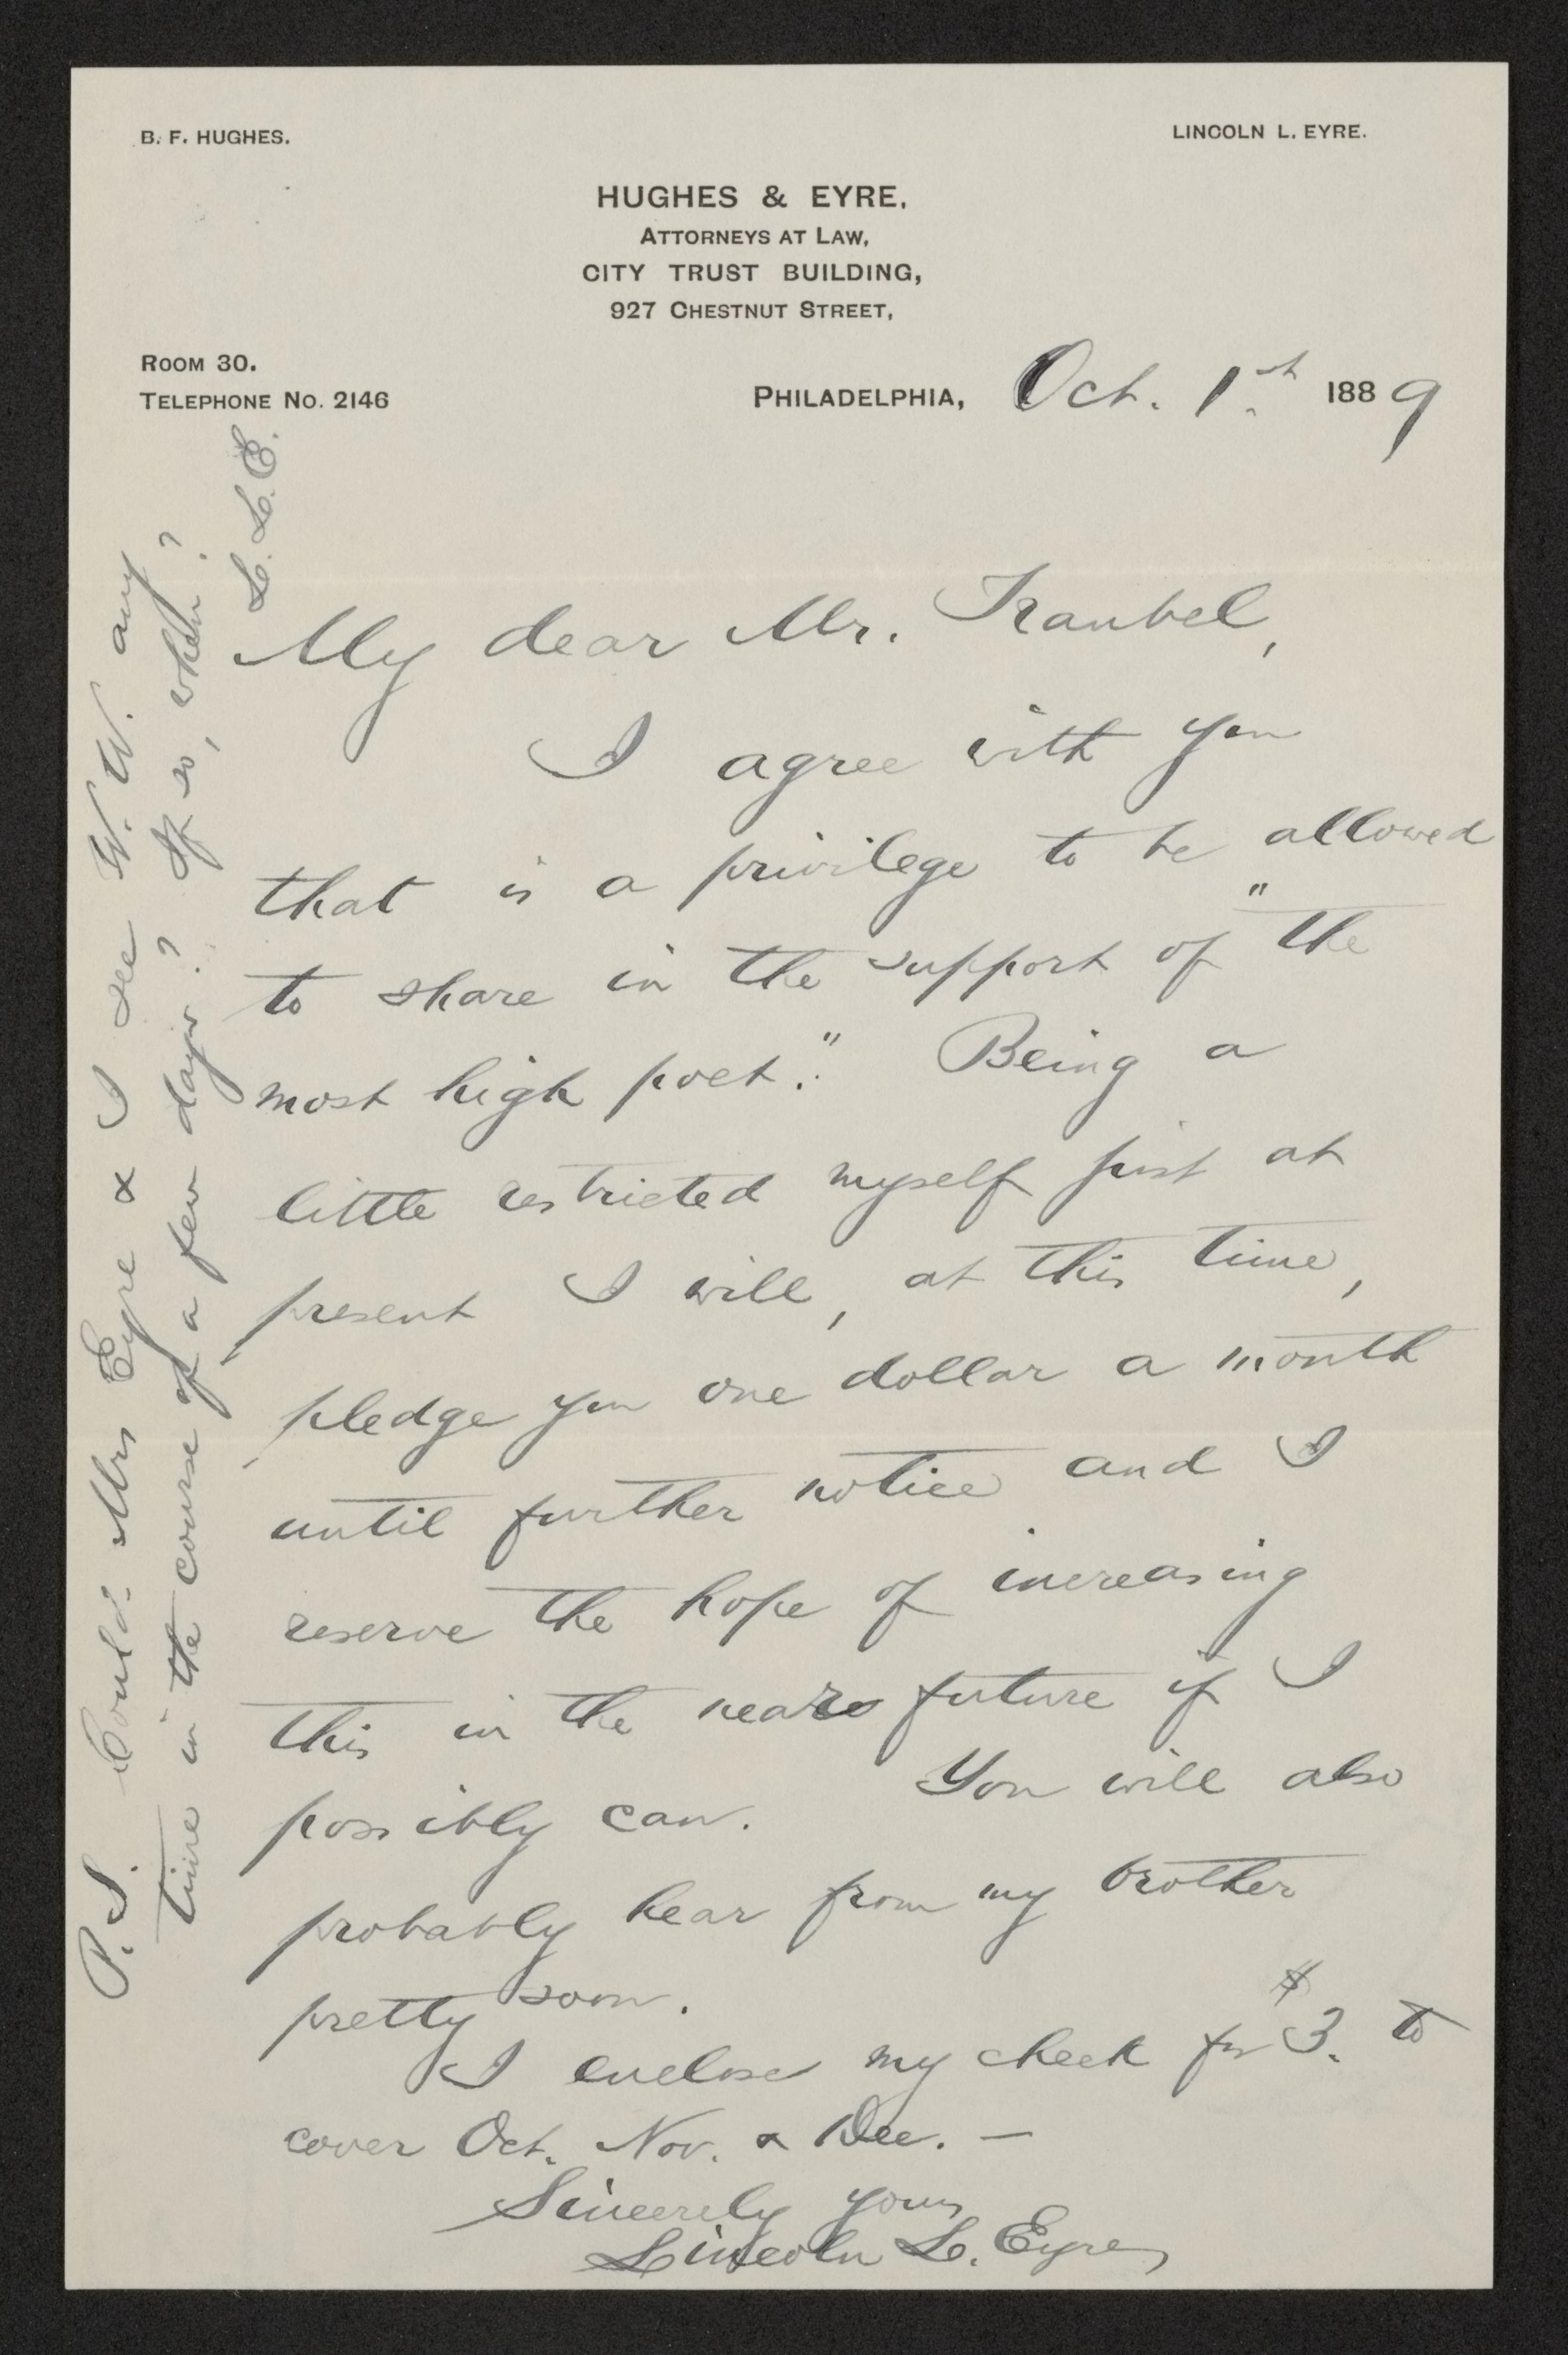 B. F. HUGHES.
LINCOLN L. EYRE.
HUGHES & EYRE,
ATTORNEYS AT LAW,
CITY TRUST BUILDING,
927 CHESTNUT STREET,
ROOM 30.
TELEPHONE NO. 2146
PHILADELPHIA, Oct. 1st. 1889
My dear Mr. Traubel,
I agree with you
that is a privilege to be allowed
to share in the support of "the
most high poet." Being a
little restricted myself just at
present I will, at this time,
pledge you one dollar a month
until further notice and I
reserve the hope of increasing
this in the near future if I
possibly can. You will also
probably hear from my brother
pretty soon.
I enclose my check for $3. to
cover Oct. Nov. & Dec. —
Sincerely yours
Lincoln L. Eyre
P.S. Could Mrs Eyre & I see W. W. any
time in the course of a few days? If so, when?
L. L. E.